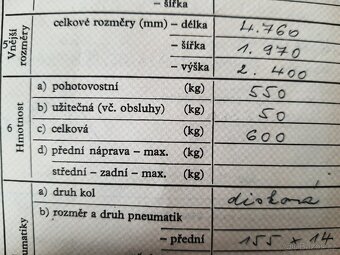 – šířka
celkové rozměry (mm) – délka 4.760
5 Vnější rozměry
– šířka 1.970
– výška 2.400
6 Hmotnost
a) pohotovostní (kg) 550
b) užitečná (vč. obsluhy) (kg) 50
c) celková (kg) 600
d) přední náprava – max. (kg)
střední – zadní – max. (kg)
a) druh kol disková
b) rozměr a druh pneumatik
– přední 155 × 14